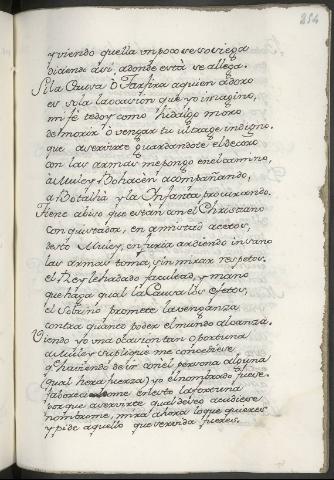 254
y viendo quella un poco se sosiega
diciendi assi adonde está se allega.
Si la Causa ô Tarfira a quien adoro
es sola la ocasion que yo imagino,
mi fe te doy como hidalgo moro
de morir ô vengar tu ultrage indigno.
que a servirte guardandote el decoro
con las armas me pongo en el camino,
a Muley Bohacen acompañando,
a Botalhá y la Infanta procurando.
Tiene abiso que estan con el Christiano
Conquistador, en amistad acetos,
desto Muley, en furia ardiendo insano
las armas toma, sin mirar respetos.
el Rey le ha dado facultad, y mano
que haga qual la Causa los efetos,
el Soltino promete la venganza
contra quanto poder el mundo alcanza.
Viendo yo una ocasion tan oportuna
a Muley supliqué me concediese
q haviendo de ir con el persona alguna
(qual hera fuerza) yo el nombrado fuese.
porque a servirte qual deseo acudiese
nombrome, mira ahora lo que quieres
y pide aquello que